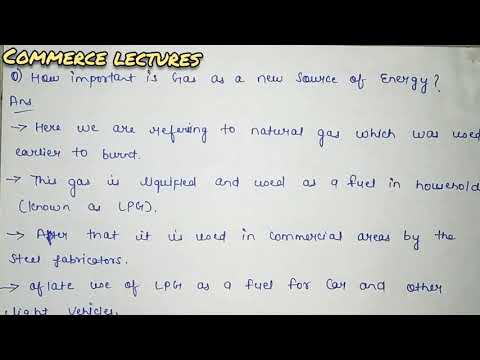 COMMERCE LECTURES
Q) How important is Gas as a new source of Energy?
Ans
→ Here we are refering to natural gas which was used
earlier to burnt.
→ This gas is liquified and used as a fuel in household
(known as LPG).
→ After that it is used in commercial areas by the
steel fabricators.
→ aflate use of LPG as a fuel for Car and other
light vehicles.